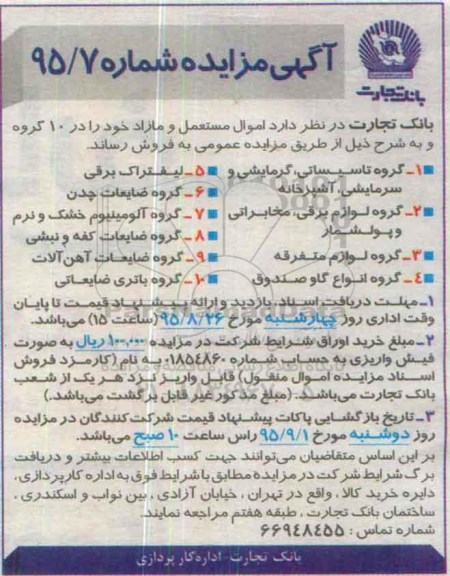 آگهی مزایده شماره ۹۵/۷
بانک تجارت
بانک تجارت در نظر دارد اموال مستعمل و مازاد خود را در ۱۰ گروه
و به شرح ذیل از طریق مزایده عمومی به فروش رساند.
۱- گروه تاسیساتی، گرمایشی و
سرمایشی، آشپزخانه
۲- گروه لوازم برقی، مخابراتی
و پولشمار
۳- گروه لوازم متفرقه
۴- گروه انواع گاو صندوق
۵- لیفتراک برقی
۶- گروه ضایعات چدن
۷- گروه آلومینیوم خشک و نرم
۸- گروه ضایعات کفه و نبشی
۹- گروه ضایعات آهن آلات
۱۰- گروه باتری ضایعاتی
۱- مهلت دریافت اسناد، بازدید و ارائه پیشنهاد قیمت تا پایان
وقت اداری روز چهارشنبه مورخ ۹۵/۸/۲۶ (ساعت ۱۵) می‌باشد.
۲- مبلغ خرید اوراق شرایط شرکت در مزایده ۱۰۰,۰۰۰ ریال به صورت
فیش واریزی به حساب شماره ۱۸۵۴۸۶۰ به نام (کارمزد فروش
اسناد مزایده اموال منقول) قابل واریز نزد هر یک از شعب
بانک تجارت می‌باشد. (مبلغ مذکور غیر قابل برگشت می‌باشد.)
۳- تاریخ بازگشایی پاکات پیشنهاد قیمت شرکت کنندگان در مزایده
روز دوشنبه مورخ ۹۵/۹/۱ راس ساعت ۱۰ صبح می‌باشد.
بر این اساس متقاضیان می‌توانند جهت کسب اطلاعات بیشتر و دریافت
برگ شرایط شرکت در مزایده مطابق با شرایط فوق به اداره کارپردازی،
دایره خرید کالا، واقع در تهران، خیابان آزادی، بین نواب و اسکندری،
ساختمان بانک تجارت، طبقه هفتم مراجعه نمایند.
شماره تماس: ۶۶۹۴۸۴۵۵
بانک تجارت - اداره کار پردازی